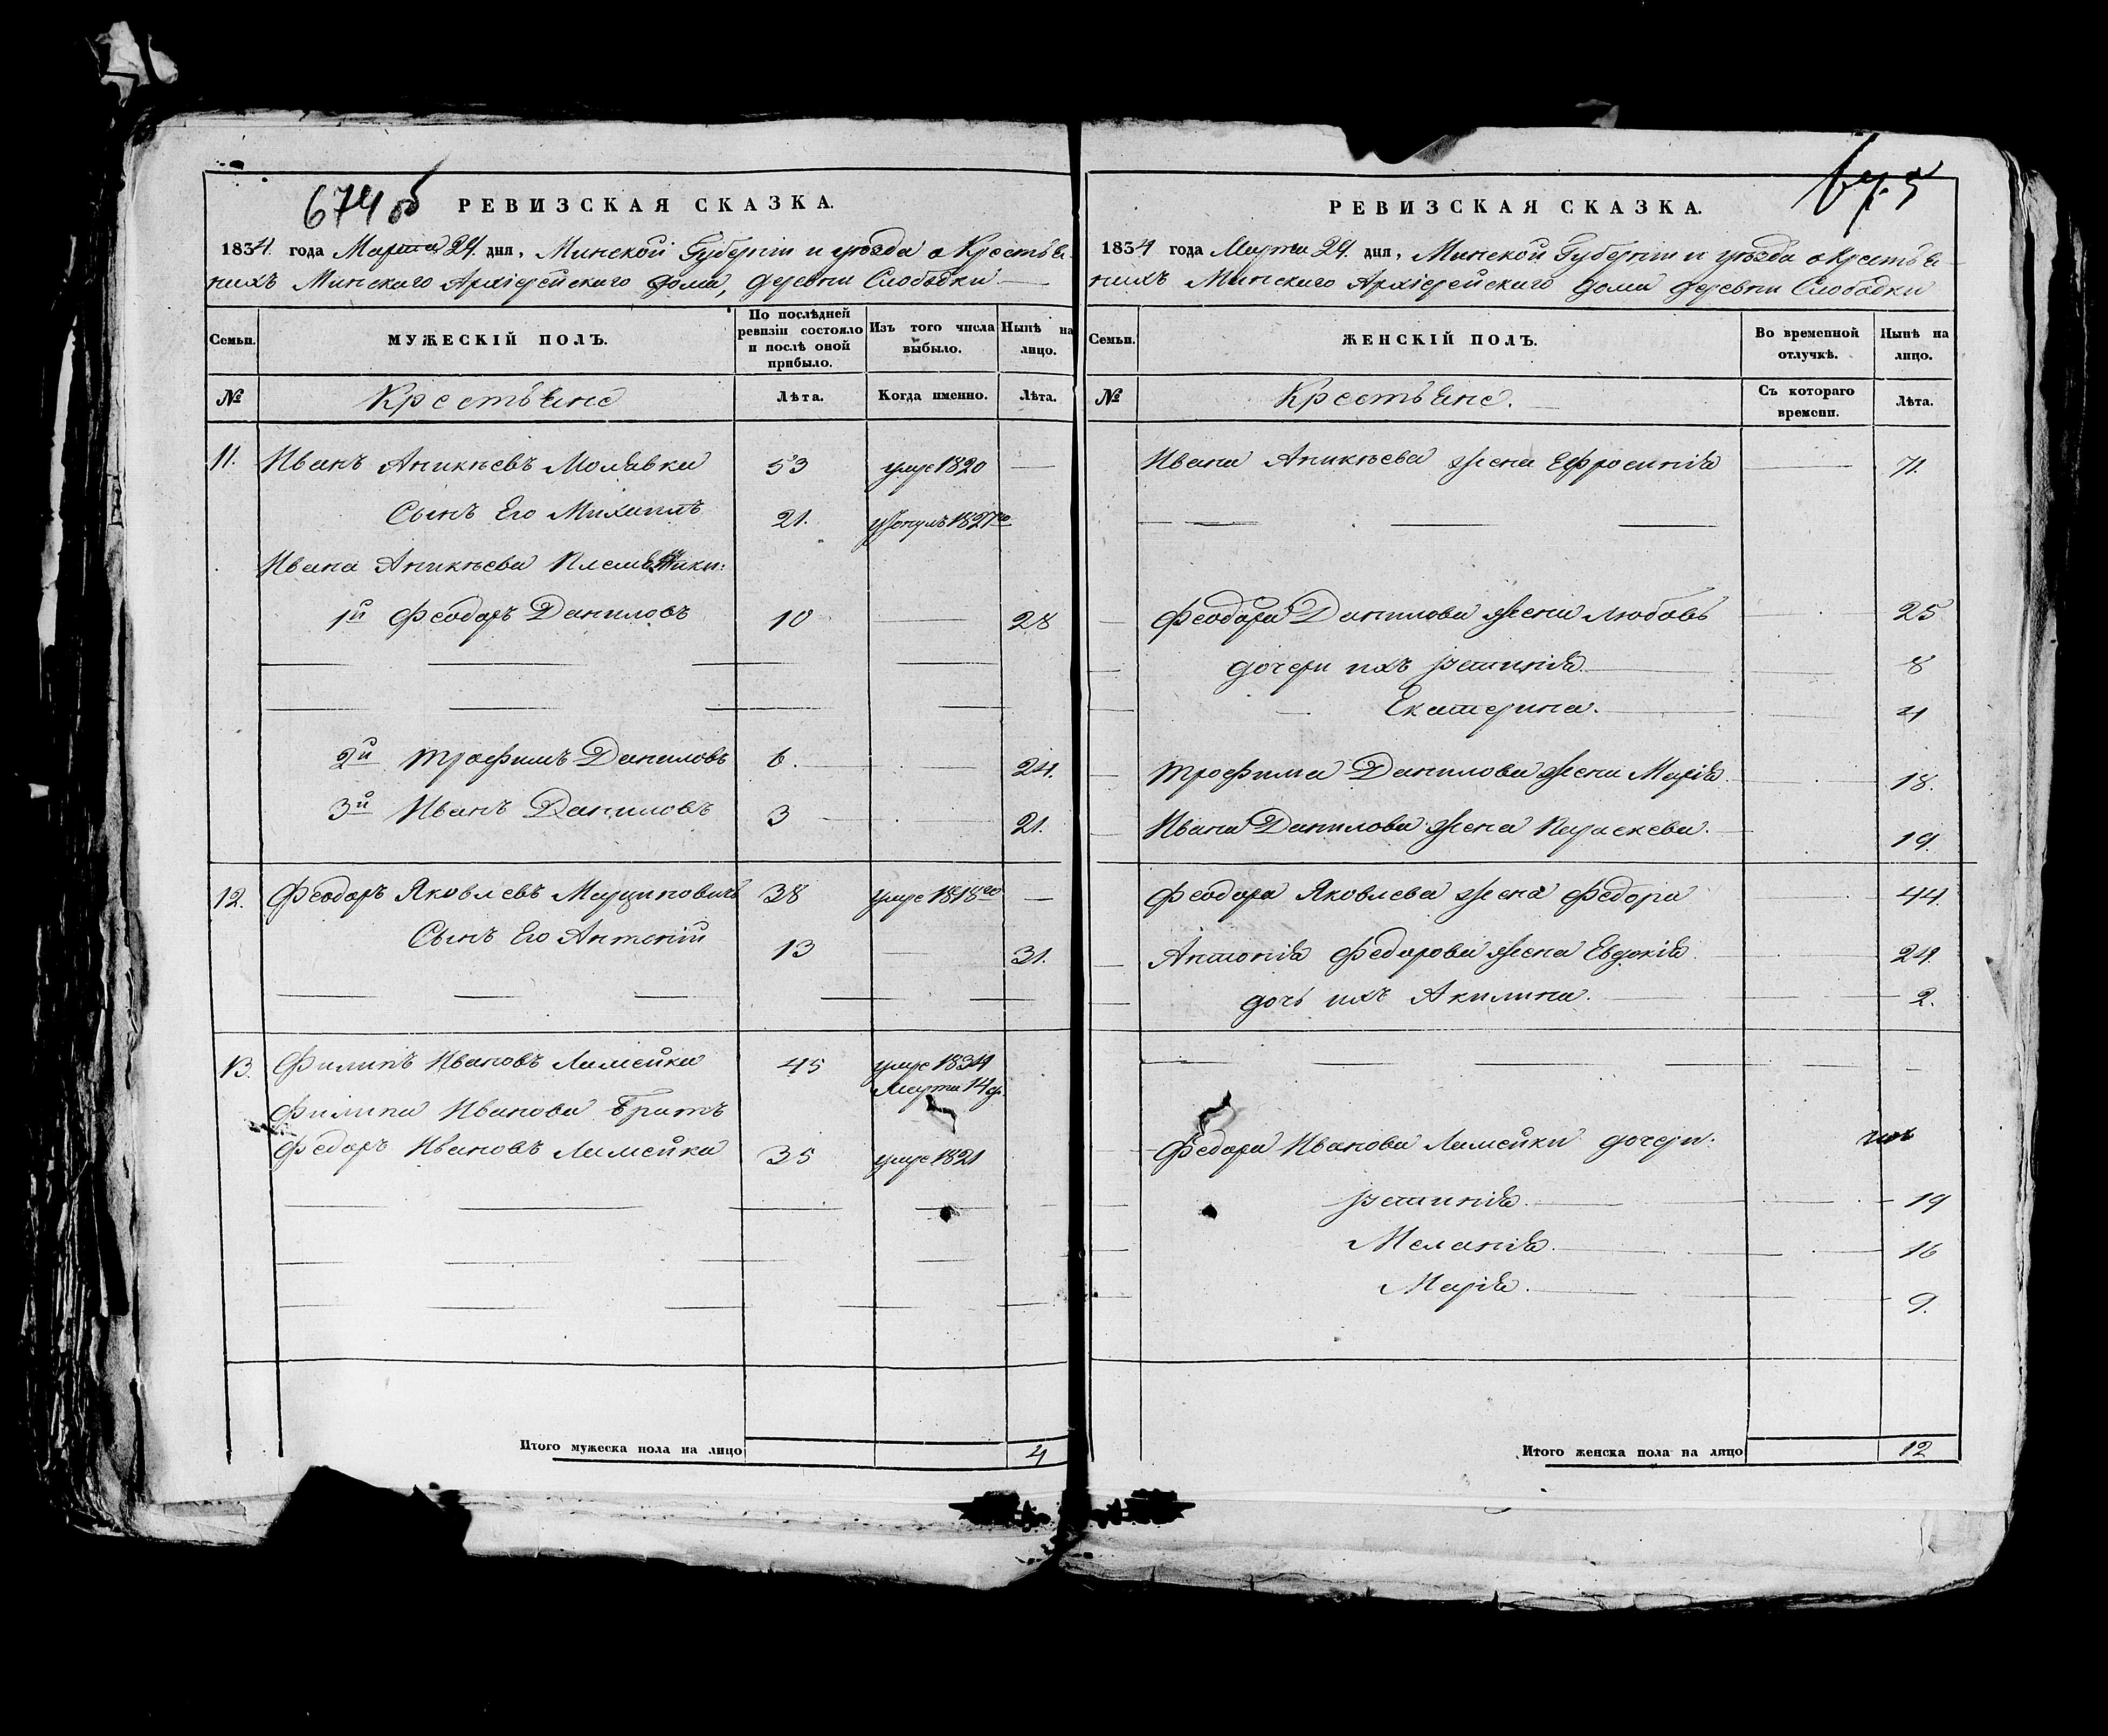 674 об
РЕВИЗСКАЯ СКАЗКА.
1834. года Марта 24. дня, Минской Губерніи и уѣзда о Крестья-
нихъ Минскаго Архіерейскаго дома, деревни Слободки
Семьи. МУЖЕСКІЙ ПОЛЪ. По послѣдней ревизіи состояло и послѣ оной прибыло. Изъ того числа выбыло. Нынѣ на лицо.
№ Крестьяне Лѣта. Когда именно. Лѣта.
11. Иванъ Аникѣевъ Молявка 53 умре 1820 —
Сынъ Его Михаилъ 21. 1827го
Ивана Аникѣева Племянники:
1й Феодоръ Даниловъ 10 — 28
2й Трофимъ Даниловъ 6. — 24.
3й Иванъ Даниловъ 3 — 21.
12. Феодоръ Яковлевъ Марциновичъ 38 умре 1818го —
Сынъ Его Антоній 13 — 31.
13. Филипъ Ивановъ Ламейка 45 умре 1834
Марта 14 д.
Филипа Иванова Братъ
Федоръ Ивановъ Ламейка 35 умре 1821
Итого мужеска пола на лицо 4
675
РЕВИЗСКАЯ СКАЗКА.
1834 года Марта 24. дня, Минской Губерніи и уѣзда о Крестья-
нихъ Минскаго Архіерейскаго дома деревни Слободки
Семьи. ЖЕНСКІЙ ПОЛЪ. Во временной отлучкѣ. Нынѣ на лицо.
№ Крестьяне. Съ котораго времени. Лѣта.
Ивана Аникѣева жена Ефросинія — 71.
Феодора Данилова жена Любовь 25
дочери ихъ Устинія 8
Екатерина. 4
Трофима Данилова жена Марія. 18.
Ивана Данилова жена Параскева. 19.
Феодора Яковлева жена Федора 44.
Антонія Федорова жена Евдокія. 24.
дочь ихъ Акилина. 2.
Федора Иванова Ламейки дочери:
Устинія. 19
Меланія. 16
Марія. 9.
Итого женска пола на лицо 12